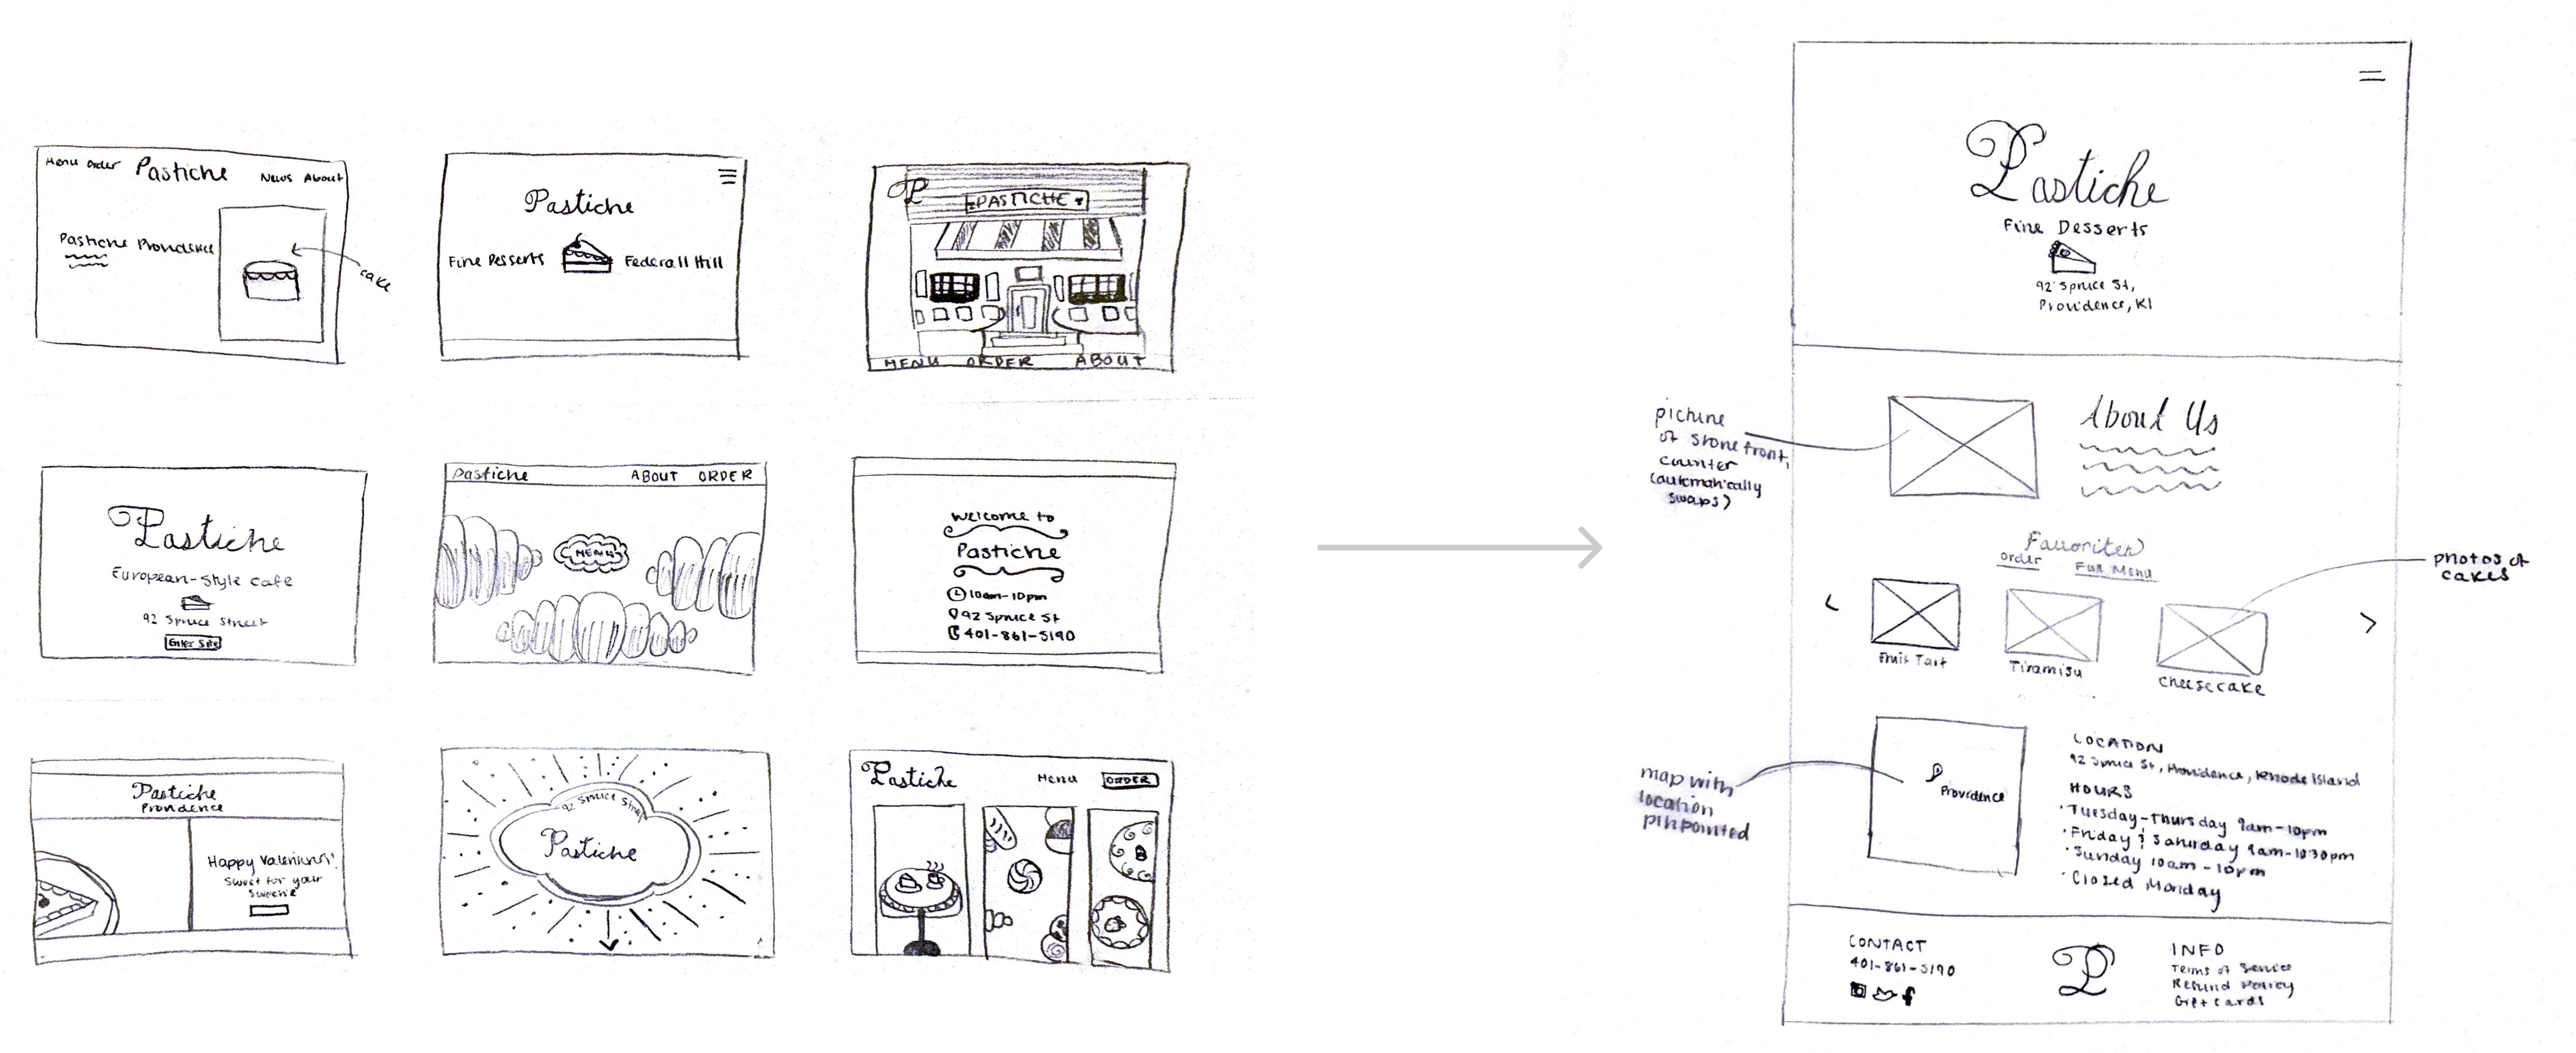 Menu Order Pastiche News About
Pastiche Providence
cake
Pastiche
Fine Desserts Federall Hill
P
PASTICHE
MENU ORDER ABOUT
Pastiche
European-style cafe
92 Spruce Street
Enter Site
Pastiche ABOUT ORDER
MENU
Welcome to
Pastiche
10am-10pm
92 Spruce St
401-861-5190
Pastiche
Providence
Happy Valentines!
Sweet for your
Sweetie
92 Spruce Street
Pastiche
Pastiche Menu ORDER
Pastiche
Fine Desserts
92 Spruce St,
Providence, RI
picture
of storefront,
counter
(automatically
swaps)
About Us
Favorites
Order Full Menu
photos of
cakes
< >
Fruit Tart Tiramisu Cheesecake
map with
location
pinpointed
Providence
LOCATION
92 Spruce St, Providence, Rhode Island
HOURS
· Tuesday-Thursday 9am-10pm
· Friday & Saturday 9am-10:30pm
· Sunday 10am-10pm
· Closed Monday
CONTACT
401-861-5190
P
INFO
Terms of Service
Refund Policy
Gift Cards